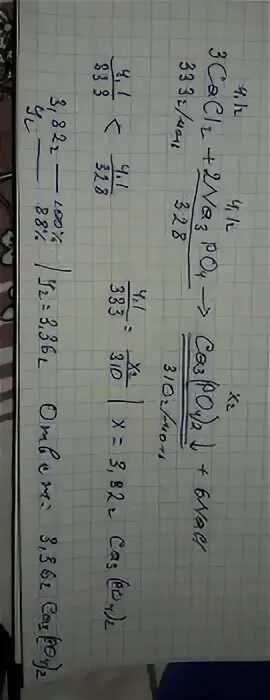 4,1г 4,1г x г
3CaCl2 + 2Na3PO4 → Ca3(PO4)2↓ + 6NaCl
333г/моль 328 310г/моль
4,1/333 < 4,1/328 4,1/333 = x г/310 | x = 3,82г Ca3(PO4)2
3,82г — 100%
yг — 88% | yг = 3,36г Ответ: 3,36г Ca3(PO4)2